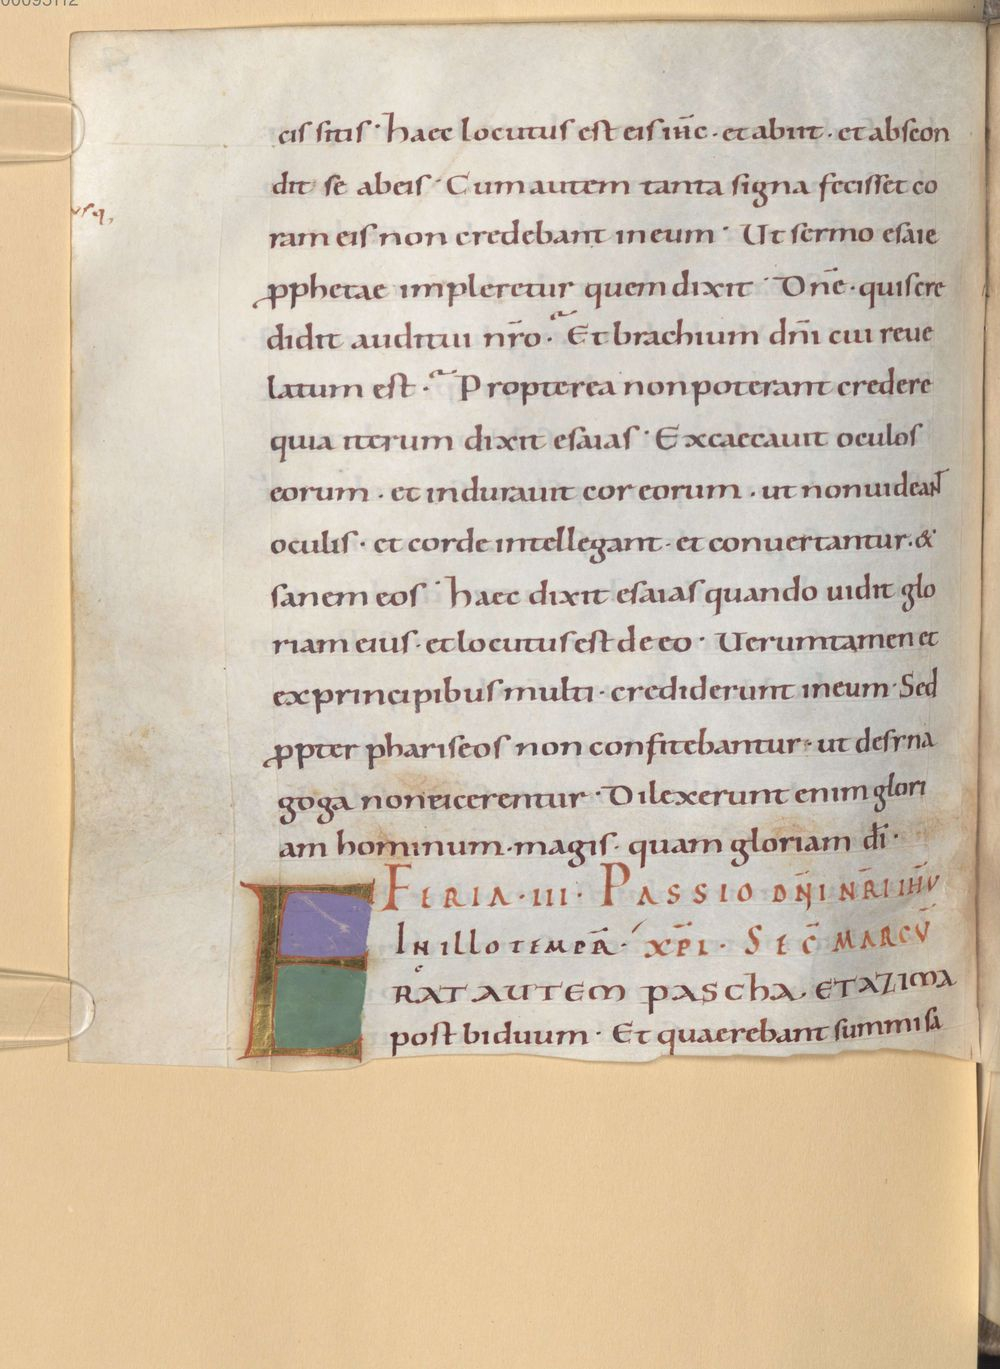 cis sitis · haec locutus est eis ihc · et abiit · et abscon
dit se abeis · Cum autem tanta signa fecisset co
ram eis non credebant in eum · Ut sermo esaie
ꝓphetae impleretur quem dixit · Dn̄e · quis cre
didit auditui nr̄o · Et brachium dn̄i cui reue
latum est · Propterea non poterant credere
quia iterum dixit esaias · Excaecauit oculos
eorum · et indurauit cor eorum · ut non uideant
oculis · et corde intellegant · et conuertantur · &
sanem eos · haec dixit esaias quando uidit glo
riam eius · et locutus est de eo · Uerumtamen et
ex principibus multi · crediderunt in eum · Sed
ꝓpter phariseos non confitebantur · ut de syna
goga non eicerentur · Dilexerunt enim glori
am hominum · magis · quam gloriam dī ·
FERIA · III · PASSIO DN̄I NR̄I IHU
IN ILLO TEMPR̄ · XP̄I · SEC̄ MARCŪ
ERAT AUTEM PASCHA · ET AZIMA
post biduum · Et quaerebant summi sa